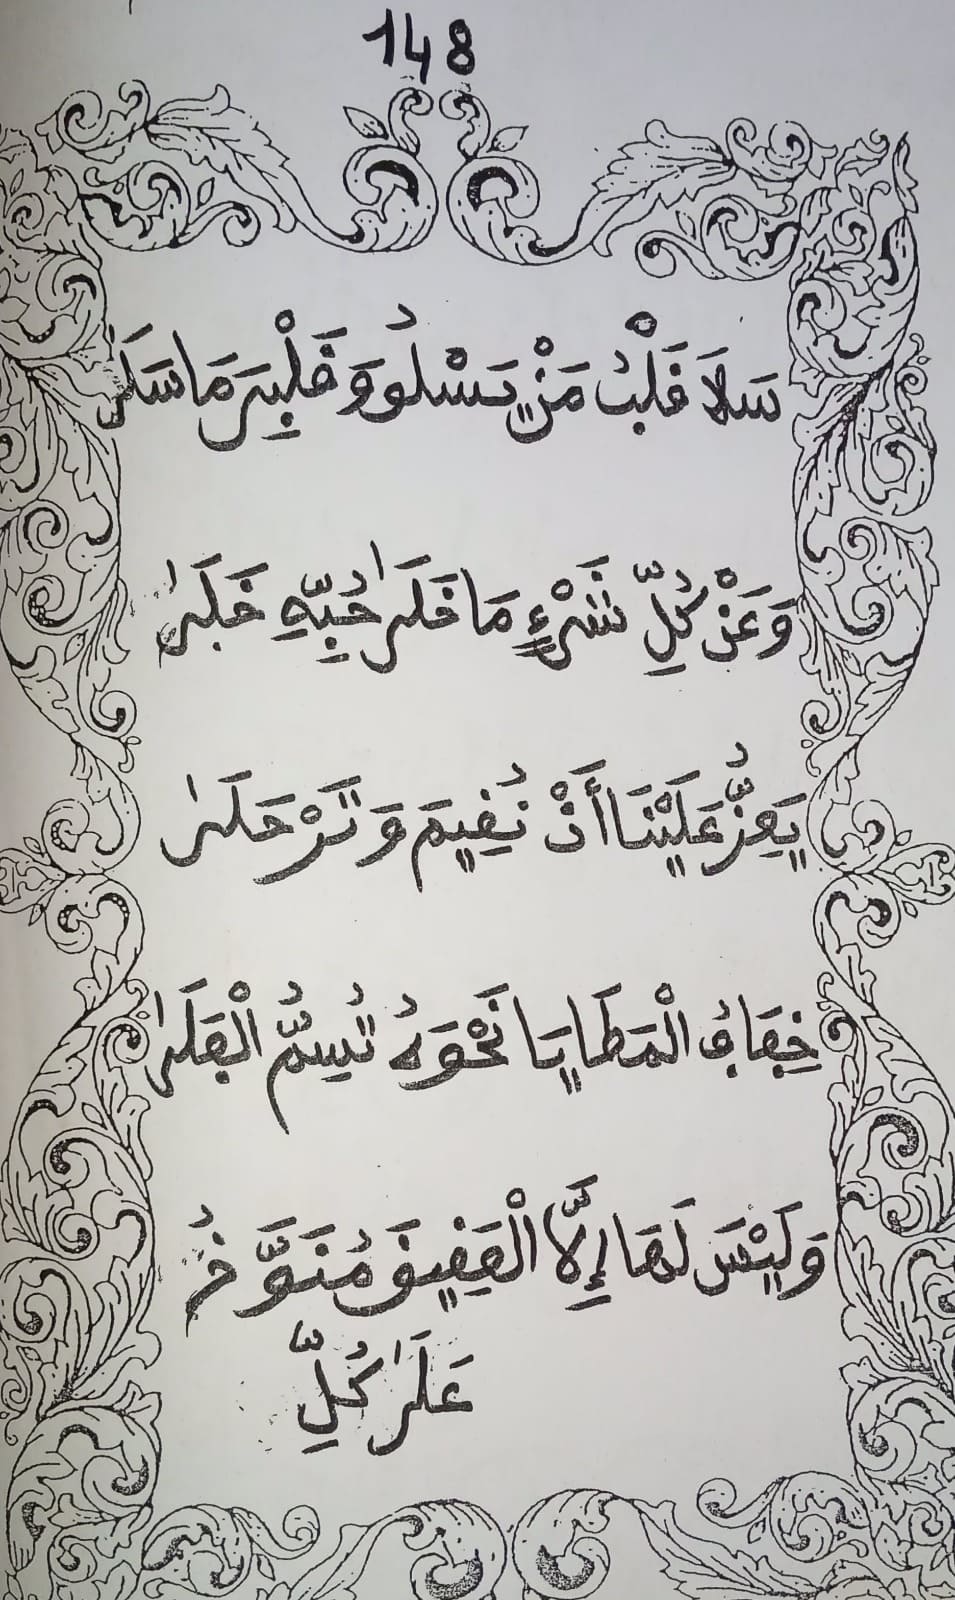 148
سَلَا قَلْبُ مَنْ يَسْلُو وَقَلْبِيَ مَا سَلَى
وَعَنْ كُلِّ شَيْءٍ مَا خَلَى حُبِّهِ خَلَى
يَعِزُّ عَلَيْنَا أَنْ نُقِيمَ وَتَرْحَلَى
خِفَافُ الْمَطَايَا نَحْوَهُ تُسِمُّ الْفَلَى
وَلَيْسَ لَهَا إِلَّا الْعَقِيقَ مُنَوَّخُ
عَلَى كُلِّ